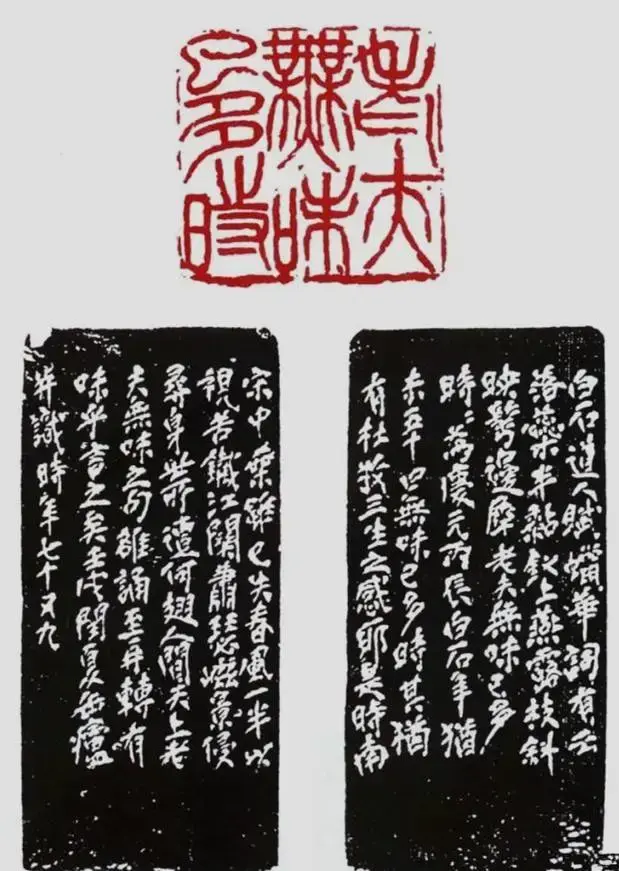 老夫
無味
已多時
白石道人賦蠟華詞有云
落蘂半黏釵上燕露枝斜
映鬢邊犀老夫無味已多
時〻為慶元丙辰白石年猶
未五十曰無味已多時其猶
有杜牧三生之感耶是時南
宋中葉雖已失春風一半以
視昔江關蕭瑟景侵
尋身世所遭何翅人間天上老
夫無味之句雒誦至再轉有
味乎言之矣壬戌閏夏缶廬
并識時年七十又九